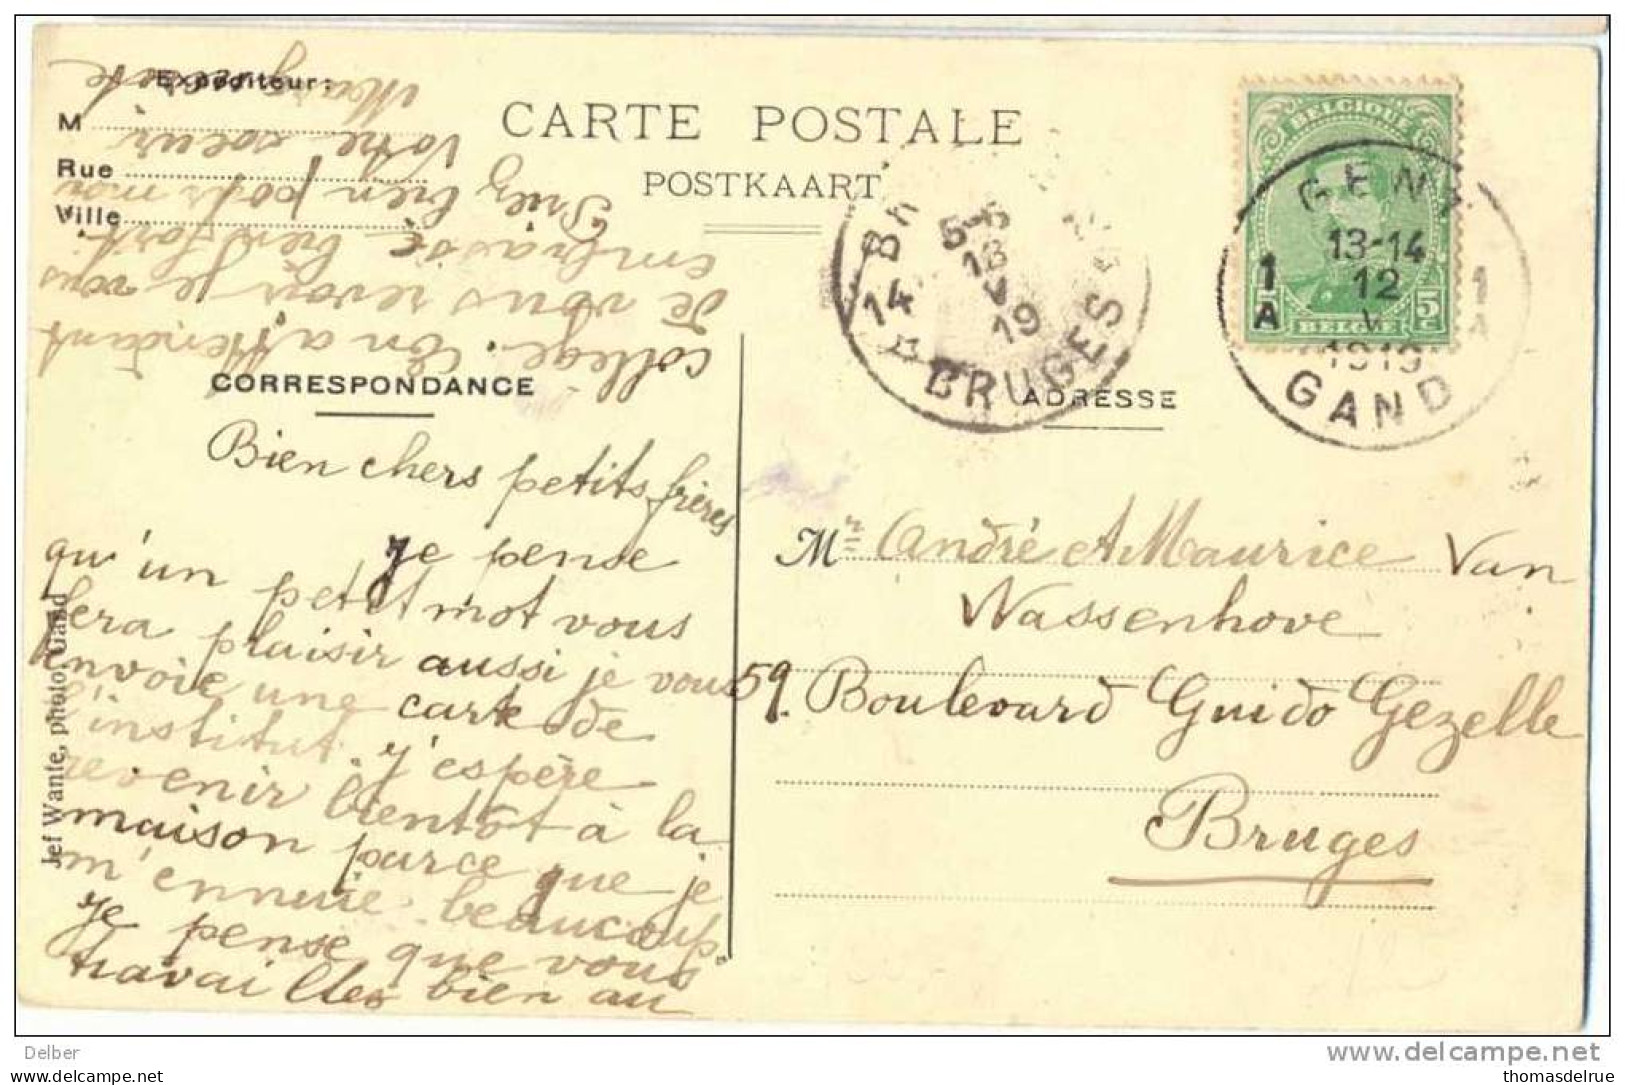 Expéditeur:
M
Rue
Ville
CARTE POSTALE
POSTKAART
BELGIQUE
5 c
5 c
BELGIË
GENT
1
A
13-14
12
V
1919
1
A
GAND
BR
5-6
13
V
19
14
BRUGES
CORRESPONDANCE
ADRESSE
Bien chers petits frères
Je pense
qu'un petit mot vous
fera plaisir aussi je vous
envoie une carte de
l'institut. J'espère
revenir bientôt à la
maison parce que je
m'ennuie beaucoup
Je pense que vous
travaillez bien au
collège. En attendant
de vous revoir je vous
embrasse bien fort
Priez bien pour moi
Votre soeur
Jef Wante, photo, Gand
Mr André et Maurice Van
Wassenhove
59. Boulevard Guido Gezelle
Bruges
Delber
www.delcampe.net
thomasdelrue